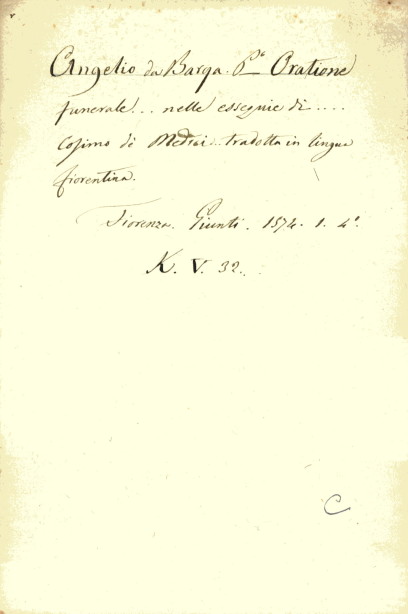 Angelio da Barga. P.º Oratione
funerale... nelle essequie di....
Cosimo de Medici.. tradotta in lingua
fiorentina.
Fiorenza. Giunti. 1574. 1. 4.º
K. V. 32.
C